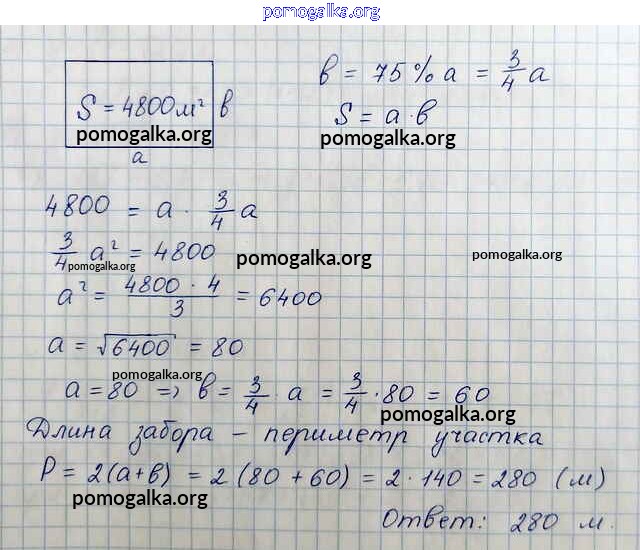 pomogalka.org
S = 4800 м² в
pomogalka.org
а
в = 75% а = 3/4 а
S = а · в
pomogalka.org
4800 = а · 3/4 а
3/4 а² = 4800
pomogalka.org
pomogalka.org
pomogalka.org
а² = (4800 · 4)/3 = 6400
а = √6400 = 80
pomogalka.org
а = 80 => в = 3/4 а = 3/4 · 80 = 60
pomogalka.org
Длина забора – периметр участка
P = 2(а+в) = 2 (80 + 60) = 2 · 140 = 280 (м)
pomogalka.org
Ответ: 280 м.